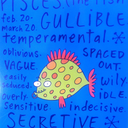 PISCES (THE FISH)
feb. 20- GULLIBLE
march 20.
temperamental. *
oblivious. SPACED
VAGUE OUT.
easily wily
seduced. IDLE.
overly
sensitive indecisive.
SECRETIVE *